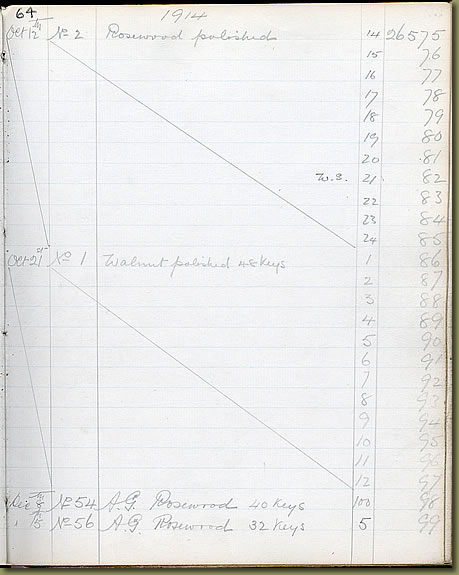 64 1914
Oct 12th No 2 Rosewood polished 14 26575
15 76
16 77
17 78
18 79
19 80
20 81
W.S. 21 82
22 83
23 84
24 85
Oct 21st No 1 Walnut polished 48 Keys 1 86
2 87
3 88
4 89
5 90
6 91
7 92
8 93
9 94
10 95
11 96
12 97
Dec th No 54 A.G. Rosewood 40 Keys 100 98
" 15th No 56 A.G. Rosewood 32 Keys 5 99